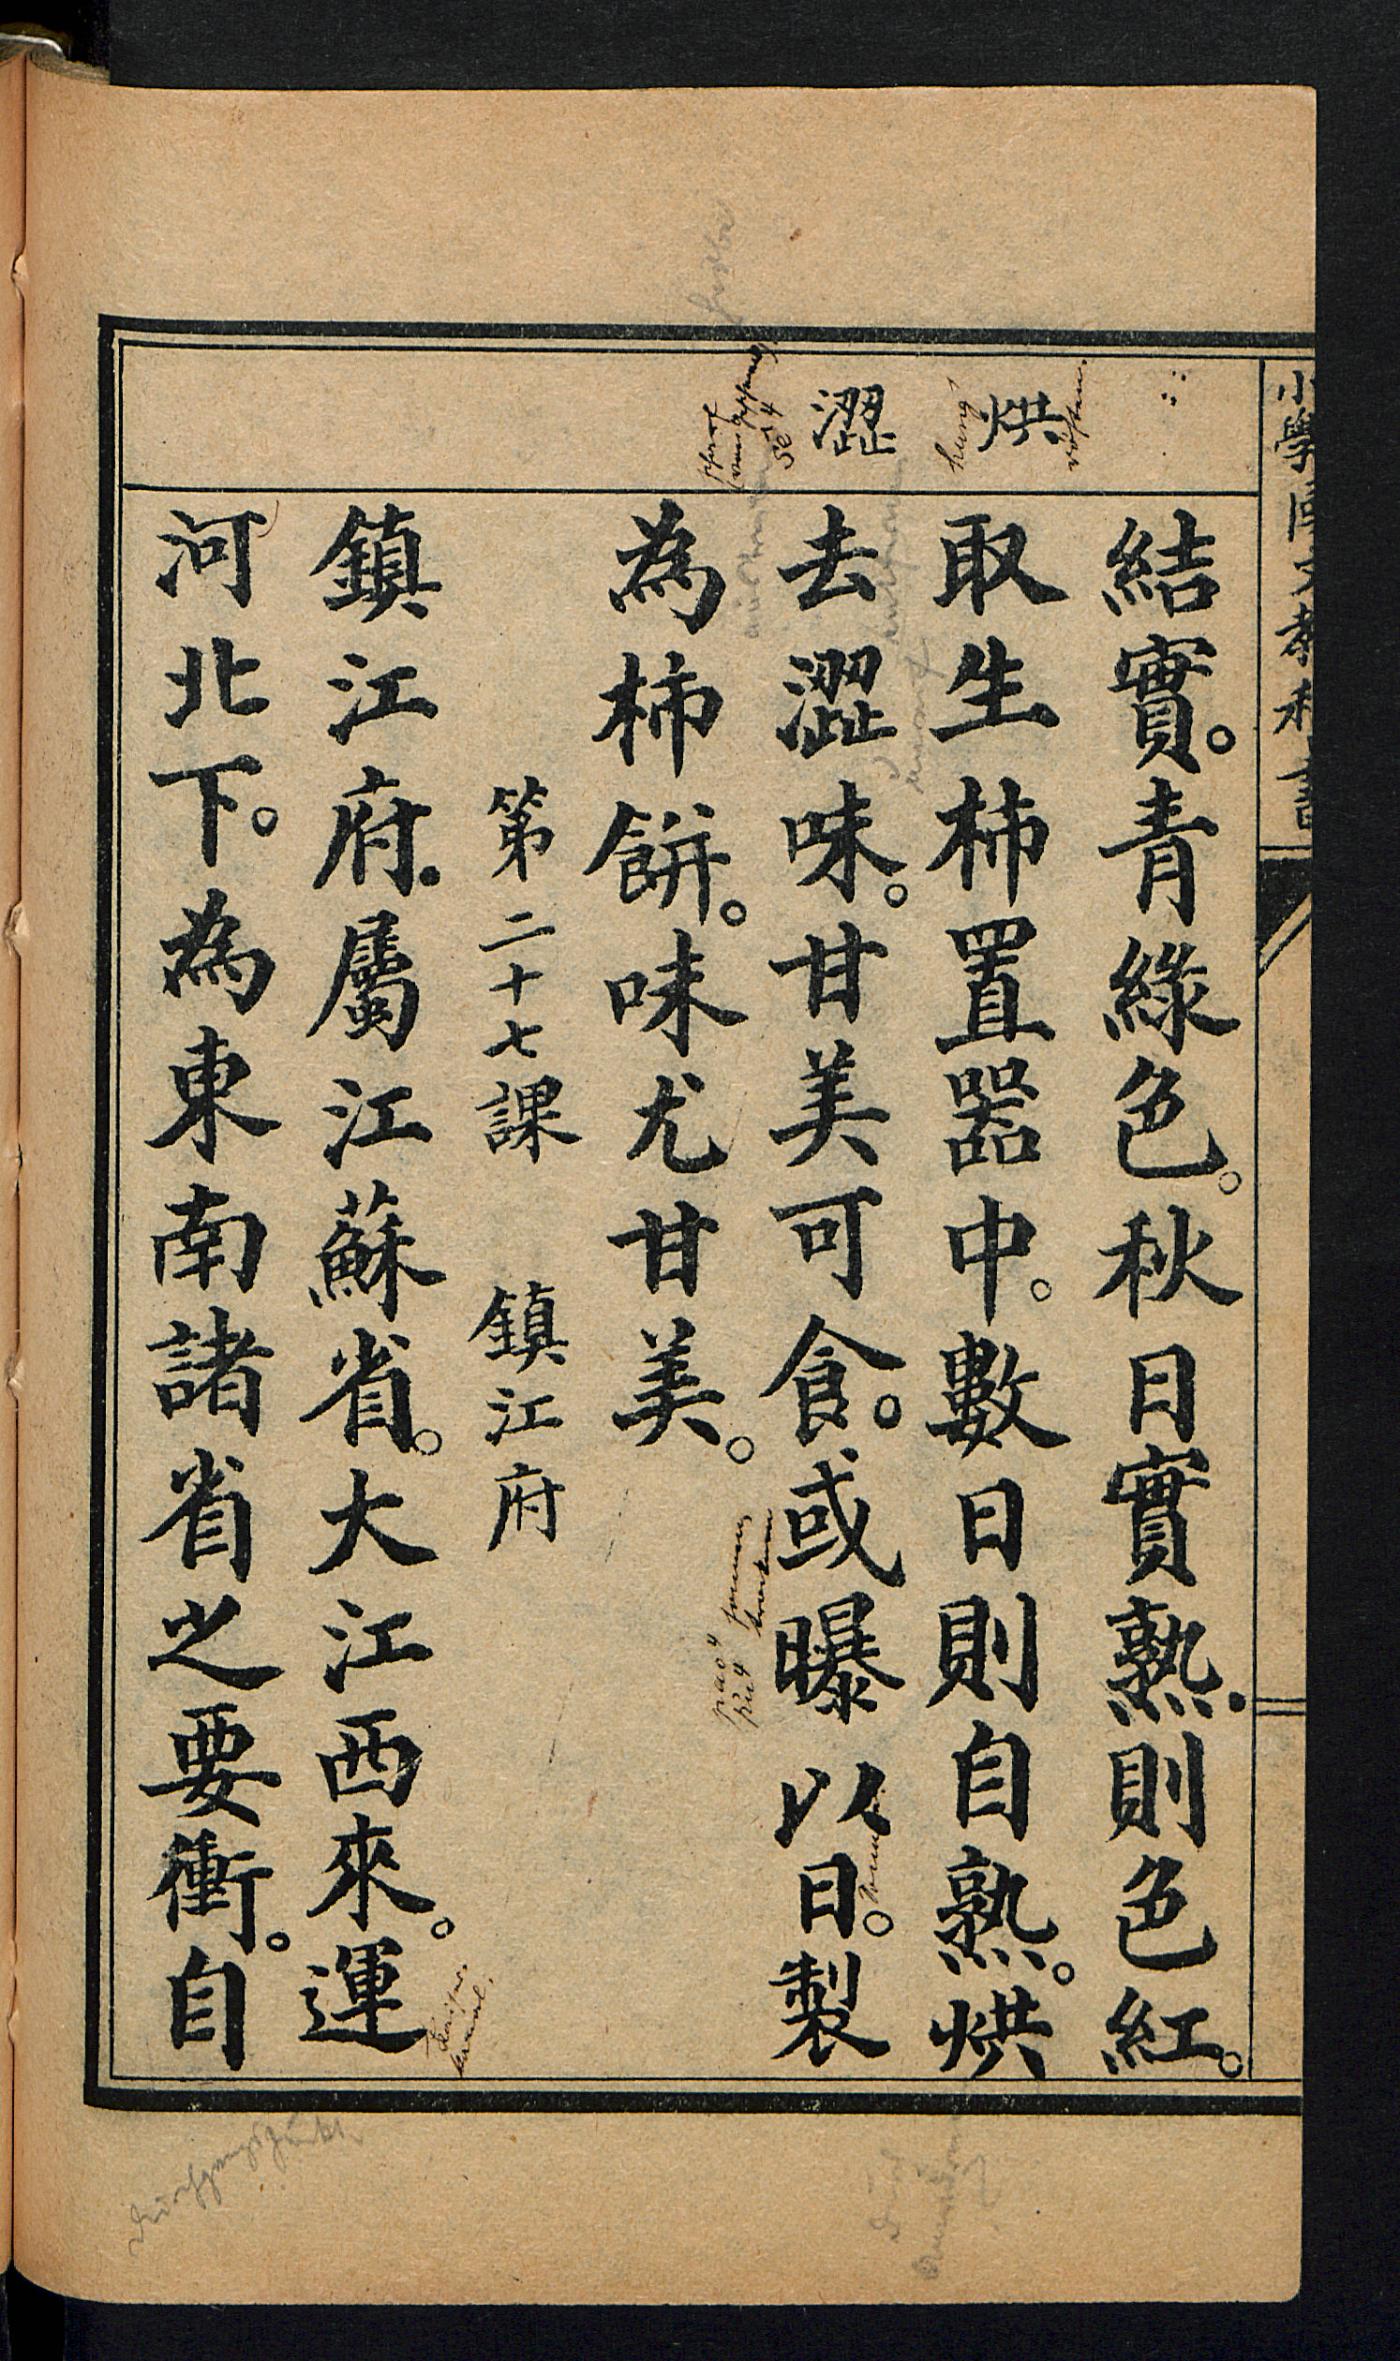 烘
澀
結實。青綠色。秋日實熟.則色紅。
取生柿置器中。數日則自熟。烘
去澀味。甘美可食。或曝以日。製
為柿餅。味尤甘美。
第二十七課　鎮江府
鎮江府.屬江蘇省。大江西來。運
河北下。為東南諸省之要衝。自
hung
se 4
pao 4
pu 4